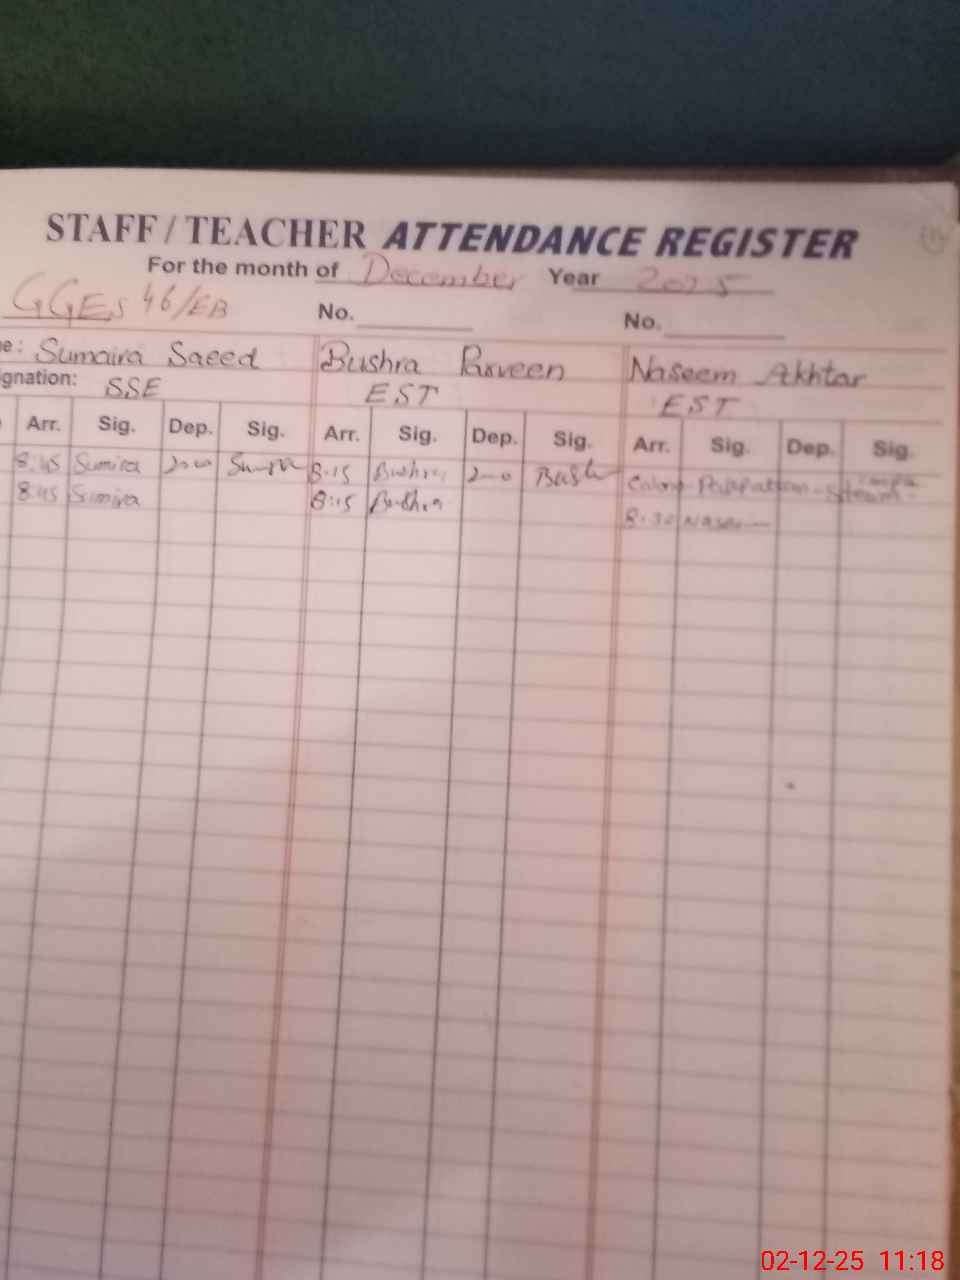 STAFF / TEACHER ATTENDANCE REGISTER
For the month of December Year 2025
GGES 46/EB No. No.
e: Sumaira Saeed Bushra Parveen Naseem Akhtar
ignation: SSE EST EST
Arr. Sig. Dep. Sig. Arr. Sig. Dep. Sig. Arr. Sig. Dep. Sig.
8:45 Sumira 2:00 8:15 Bushra 2:00 Bush
8:45 Sumira 8:15 Bushra
8:30
02-12-25 11:18